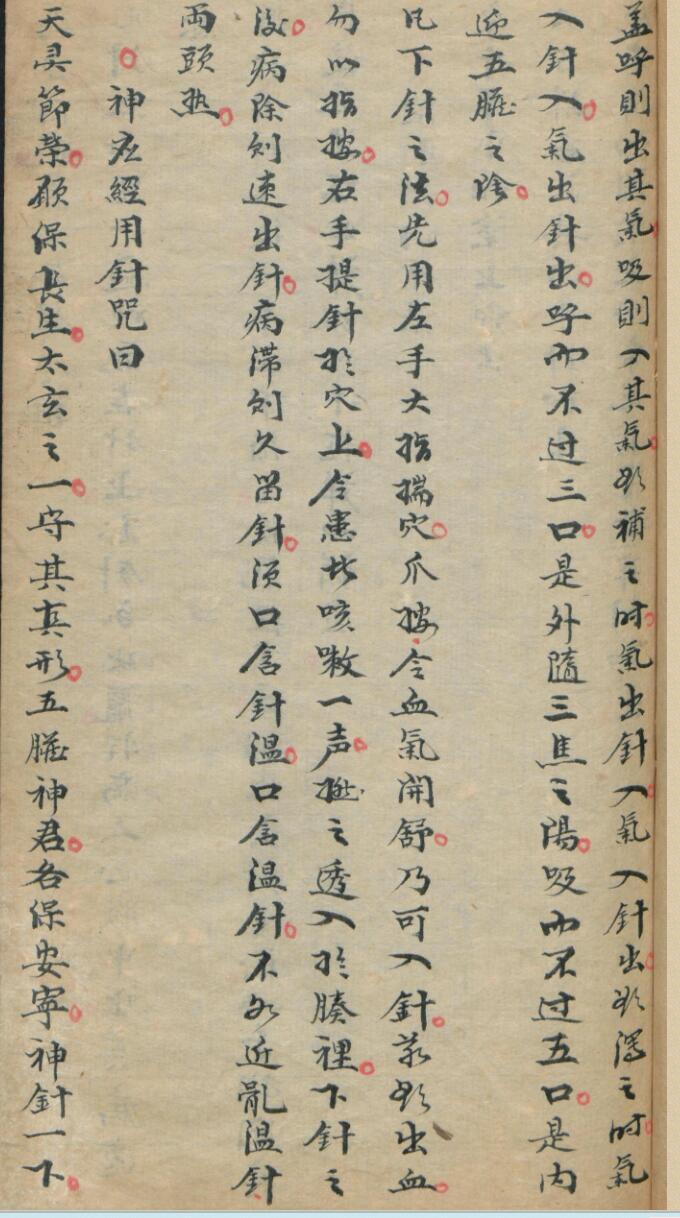 盖呼則出其氣吸則入其氣欲補之时氣出針入氣入針出欲瀉之时氣
入針入氣出針出呼而不过三口是外隨三焦之陽吸而不过五口是内
迎五臟之陰
凡下針之法先用左手大指揣穴爪按令血氣開舒乃可入針若欲出血
勿以指按右手提針於穴上令患者咳嗽一声捻之透入於腠裡下針之
後病除則速出針病滞則久留針須口含針温口含温針不如近肌温針
両頭熱
神应經用針咒曰
天灵節榮願保長生太玄之一守其真形五臟神君各保安寧神針一下